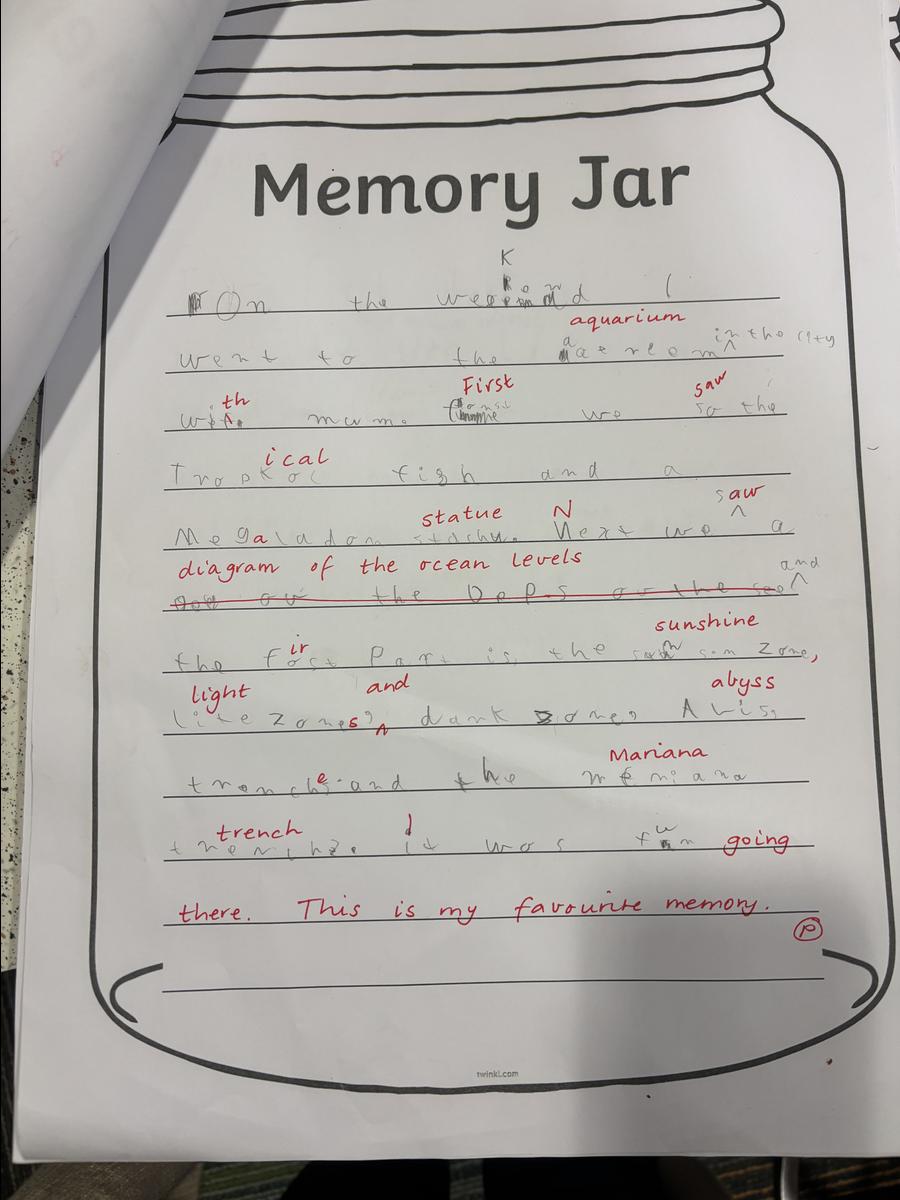 Memory Jar
K
On the weekend I
aquarium
went to the aaereom in the city
th First saw
wit mum. we so the
ical
Tropkol fish and a
statue N saw
Megaladon stachu. Next we a
diagram of the ocean levels and
the Deps ov the seo
ir sunshine
the forst Part is the sun zone,
light and abyss
lite zones, dark zone, Abis,
e Mariana
trench and the meriana
trench I
trench. it was fun going
there. This is my favourite memory.
P
twinkl.com